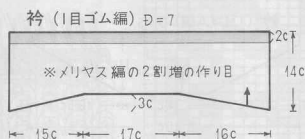 衿 (1目ゴム編) Đ=7
2c
※メリヤス編の2割増の作り目
14c
3c
15c 17c 16c